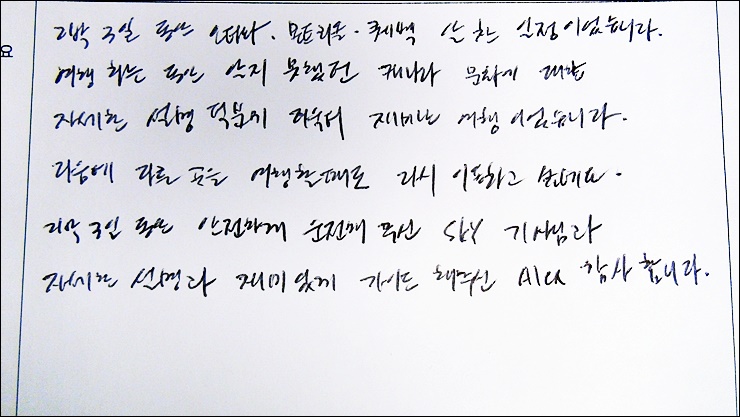 요
2박 3일 동안 오타와. 몬트리올. 퀘벡 알찬 일정이었습니다.
여행 하는 동안 알지 못했던 캐나다 문화에 대한
자세한 설명 덕분에 더욱더 재미난 여행이었습니다.
다음에 다른 곳을 여행할때도 다시 이용하고 싶네요.
2박 3일 동안 안전하게 운전해 주신 SKY 기사님과
자세한 설명과 재미있게 가이드 해주신 감사합니다.